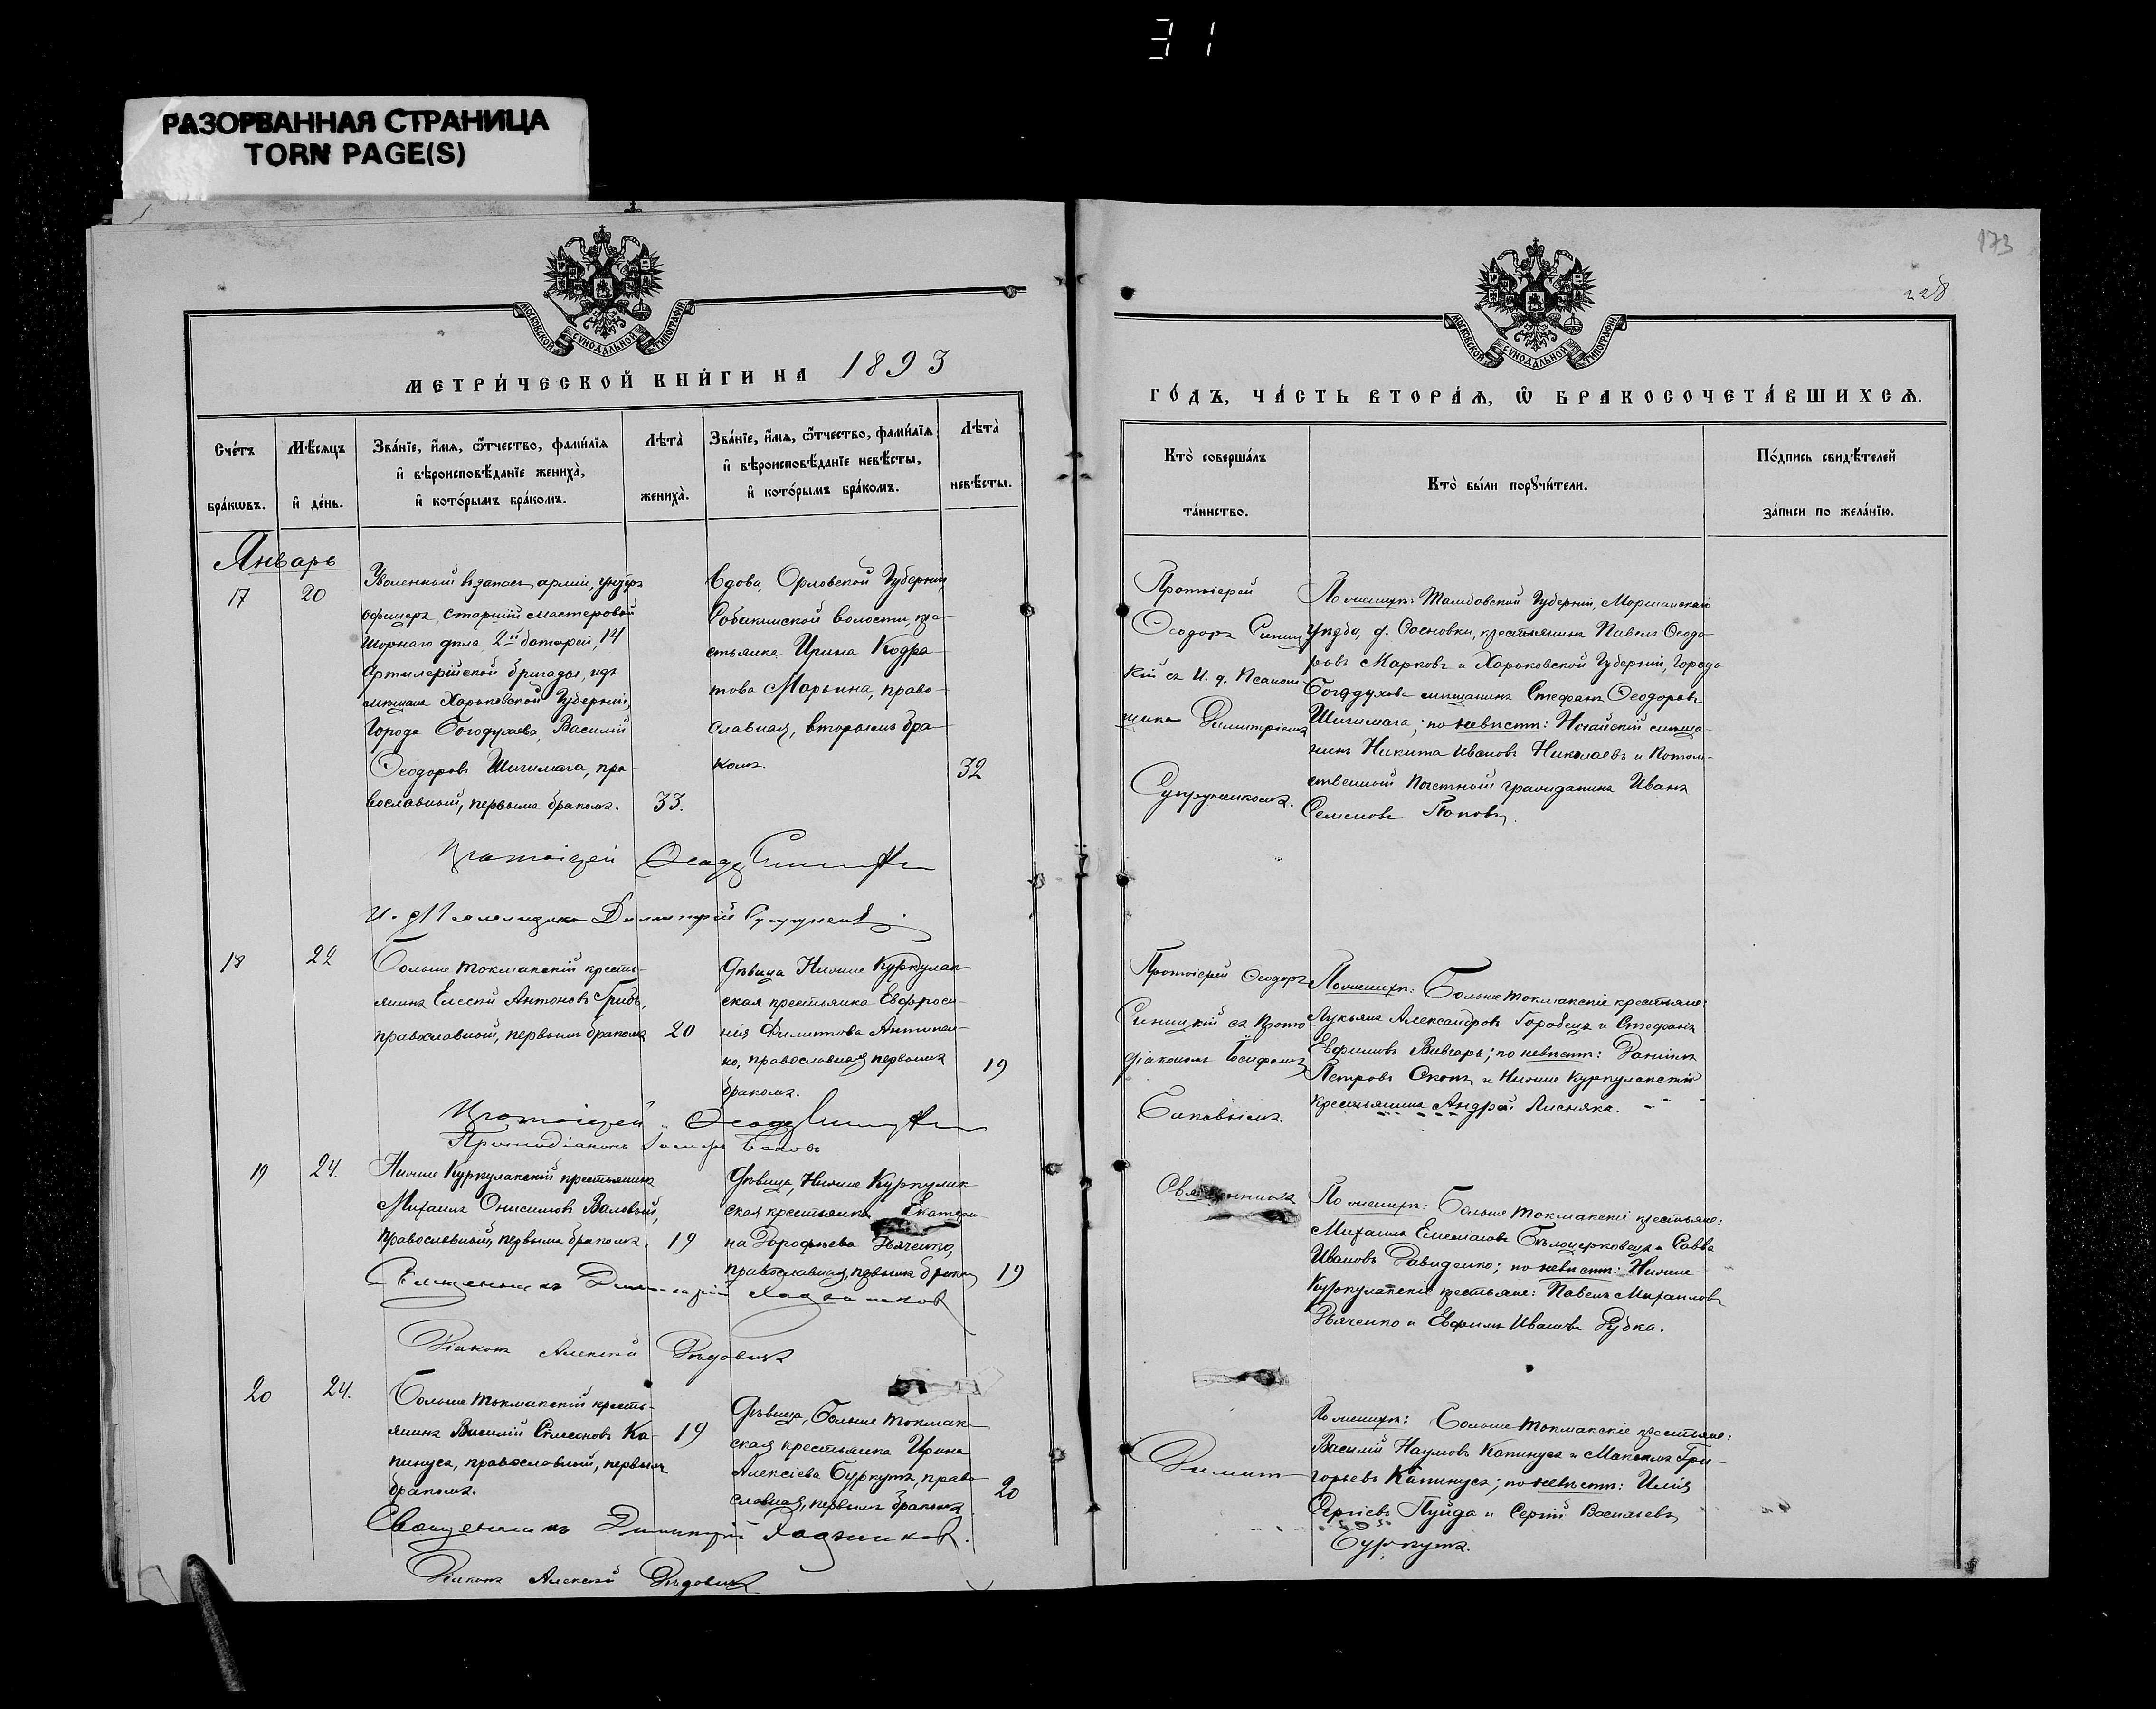 31
РАЗОРВАННАЯ СТРАНИЦА
TORN PAGE(S)
173
228
МОСКОВСКОЙ СѴНОДАЛЬНОЙ ТИПОГРАФІИ
МОСКОВСКОЙ СѴНОДАЛЬНОЙ ТИПОГРАФІИ
МЕТРИ́ЧЕСКОЙ КНИ́ГИ НА 1893
ГО́ДЪ, ЧА́СТЬ ВТОРА́Ѧ, Ѡ҆ БРАКОСОЧЕТА́ВШИХСѦ.
Сче́тъ
бра́кѡвъ.
Мѣ́сяцъ
и҆ де́нь.
Зва́нїе, и҆́мѧ, ѻ҆́тчество, фами́лїѧ
и҆ вѣроисповѣ́данїе жениха̀,
и҆ кото́рымъ бра́комъ.
Лѣта̀
жениха̀.
Зва́нїе, и҆́мѧ, ѻ҆́тчество, фами́лїѧ
и҆ вѣроисповѣ́данїе невѣ́сты,
и҆ кото́рымъ бра́комъ.
Лѣта̀
невѣ́сты.
Кто̀ соверша́лъ
та́инство.
Кто̀ бы́ли порꙋчи́тели.
По́дпись свидѣ́телей
за́писи по жела́нїю.
Январь
17
20
Уволенный въ запасъ арміи, унтеръ
офицеръ, старшій мастеровой
шорнаго дѣла, 2й батареи, 14
Артилерійской бригады, изъ
мѣщанъ Харьковской Губерніи,
Города Богодухова, Василій
Ѳеодоровъ Шигимага, пра-
вославный, первымъ бракомъ.
33.
Вдова, Орловской Губерніи,
Собакинской волости, кре-
стьянка Ирина Кодра-
това Марьина, право-
славная, вторымъ бра-
комъ.
32
Протоіерей
Ѳеодоръ Синиц
кій съ И. д. Псалом-
щика Димитріемъ
Супруненкомъ.
По женихѣ: Тамбовской Губерніи, Моршанскаго
Уѣзда, д. Сосновки, крестьянинъ Павелъ Ѳеодо-
ровъ Марковъ и Харьковской Губерніи, Города
Богодухова мѣщанинъ Стефанъ Ѳеодоровъ
Шигимага; по невѣстѣ: Ногайскій мѣща-
нинъ Никита Ивановъ Николаевъ и Потом-
ственный Почетный гражданинъ Иванъ
Семеновъ Поповъ.
Протоіерей Ѳеодоръ Синицкій
И. д. Псаломщика Димитрій Супруненко
18
22
Больше Токмакскій кресть-
янинъ Елисей Антоновъ Грибъ,
православный, первымъ бракомъ
20
Дѣвица Нижне Куркулак-
ская крестьянка Евфроси-
нія Филиппова Антонен-
ко, православная первымъ
бракомъ.
19
Протоіерей Ѳеодоръ
Синицкій съ Прото-
діакономъ Іосифомъ
Баковымъ.
По женихѣ: Больше Токмакскіе крестьяне:
Лукьянъ Александровъ Горобецъ и Стефанъ
Ефимовъ Вивчарь; по невѣстѣ: Даніилъ
Петровъ Оконъ и Нижне Куркулакскій
крестьянинъ Андрей Лисняка.
Протоіерей Ѳеодоръ Синицкій
Протодіаконъ Іосифъ Баковъ
19
24.
Нижне Куркулакскій крестьянинъ
Михаилъ Онисимовъ Валовый,
православный, первымъ бракомъ.
19
Дѣвица, Нижне Куркулак-
ская крестьянка Екатери-
на Дорофѣева Дьяченко,
православная, первымъ браком
19
Священникъ
По женихѣ: Больше Токмакскіе крестьяне:
Михаилъ Емеліановъ Бѣлоцерковецъ и Савва
Ивановъ Давиденко; по невѣстѣ: Нижне-
Куркулакскіе крестьяне: Павелъ Михаиловъ
Дьяченко и Ефимъ Ивановъ Дубка.
Священникъ Димитрій
Діаконъ Алексѣй Дѣдовичъ
20
24.
Больше Токмакскій кресть-
янинъ Василій Симеоновъ Ка-
пинусъ, православный, первымъ
бракомъ.
19
Дѣвица, Больше Токмак-
ская крестьянка Ирина
Алексіева Буркутъ, право-
славная, первымъ бракомъ
20
Димит-
По женихѣ: Больше Токмакскіе крестьяне:
Василій Наумовъ Капинусъ и Максимъ Гри-
горьевъ Капинусъ; по невѣстѣ: Илія
Сергіевъ Пуйда и Сергій Васильевъ
Буркутъ.
Священникъ Димитрій
Діаконъ Алексѣй Дѣдовичъ